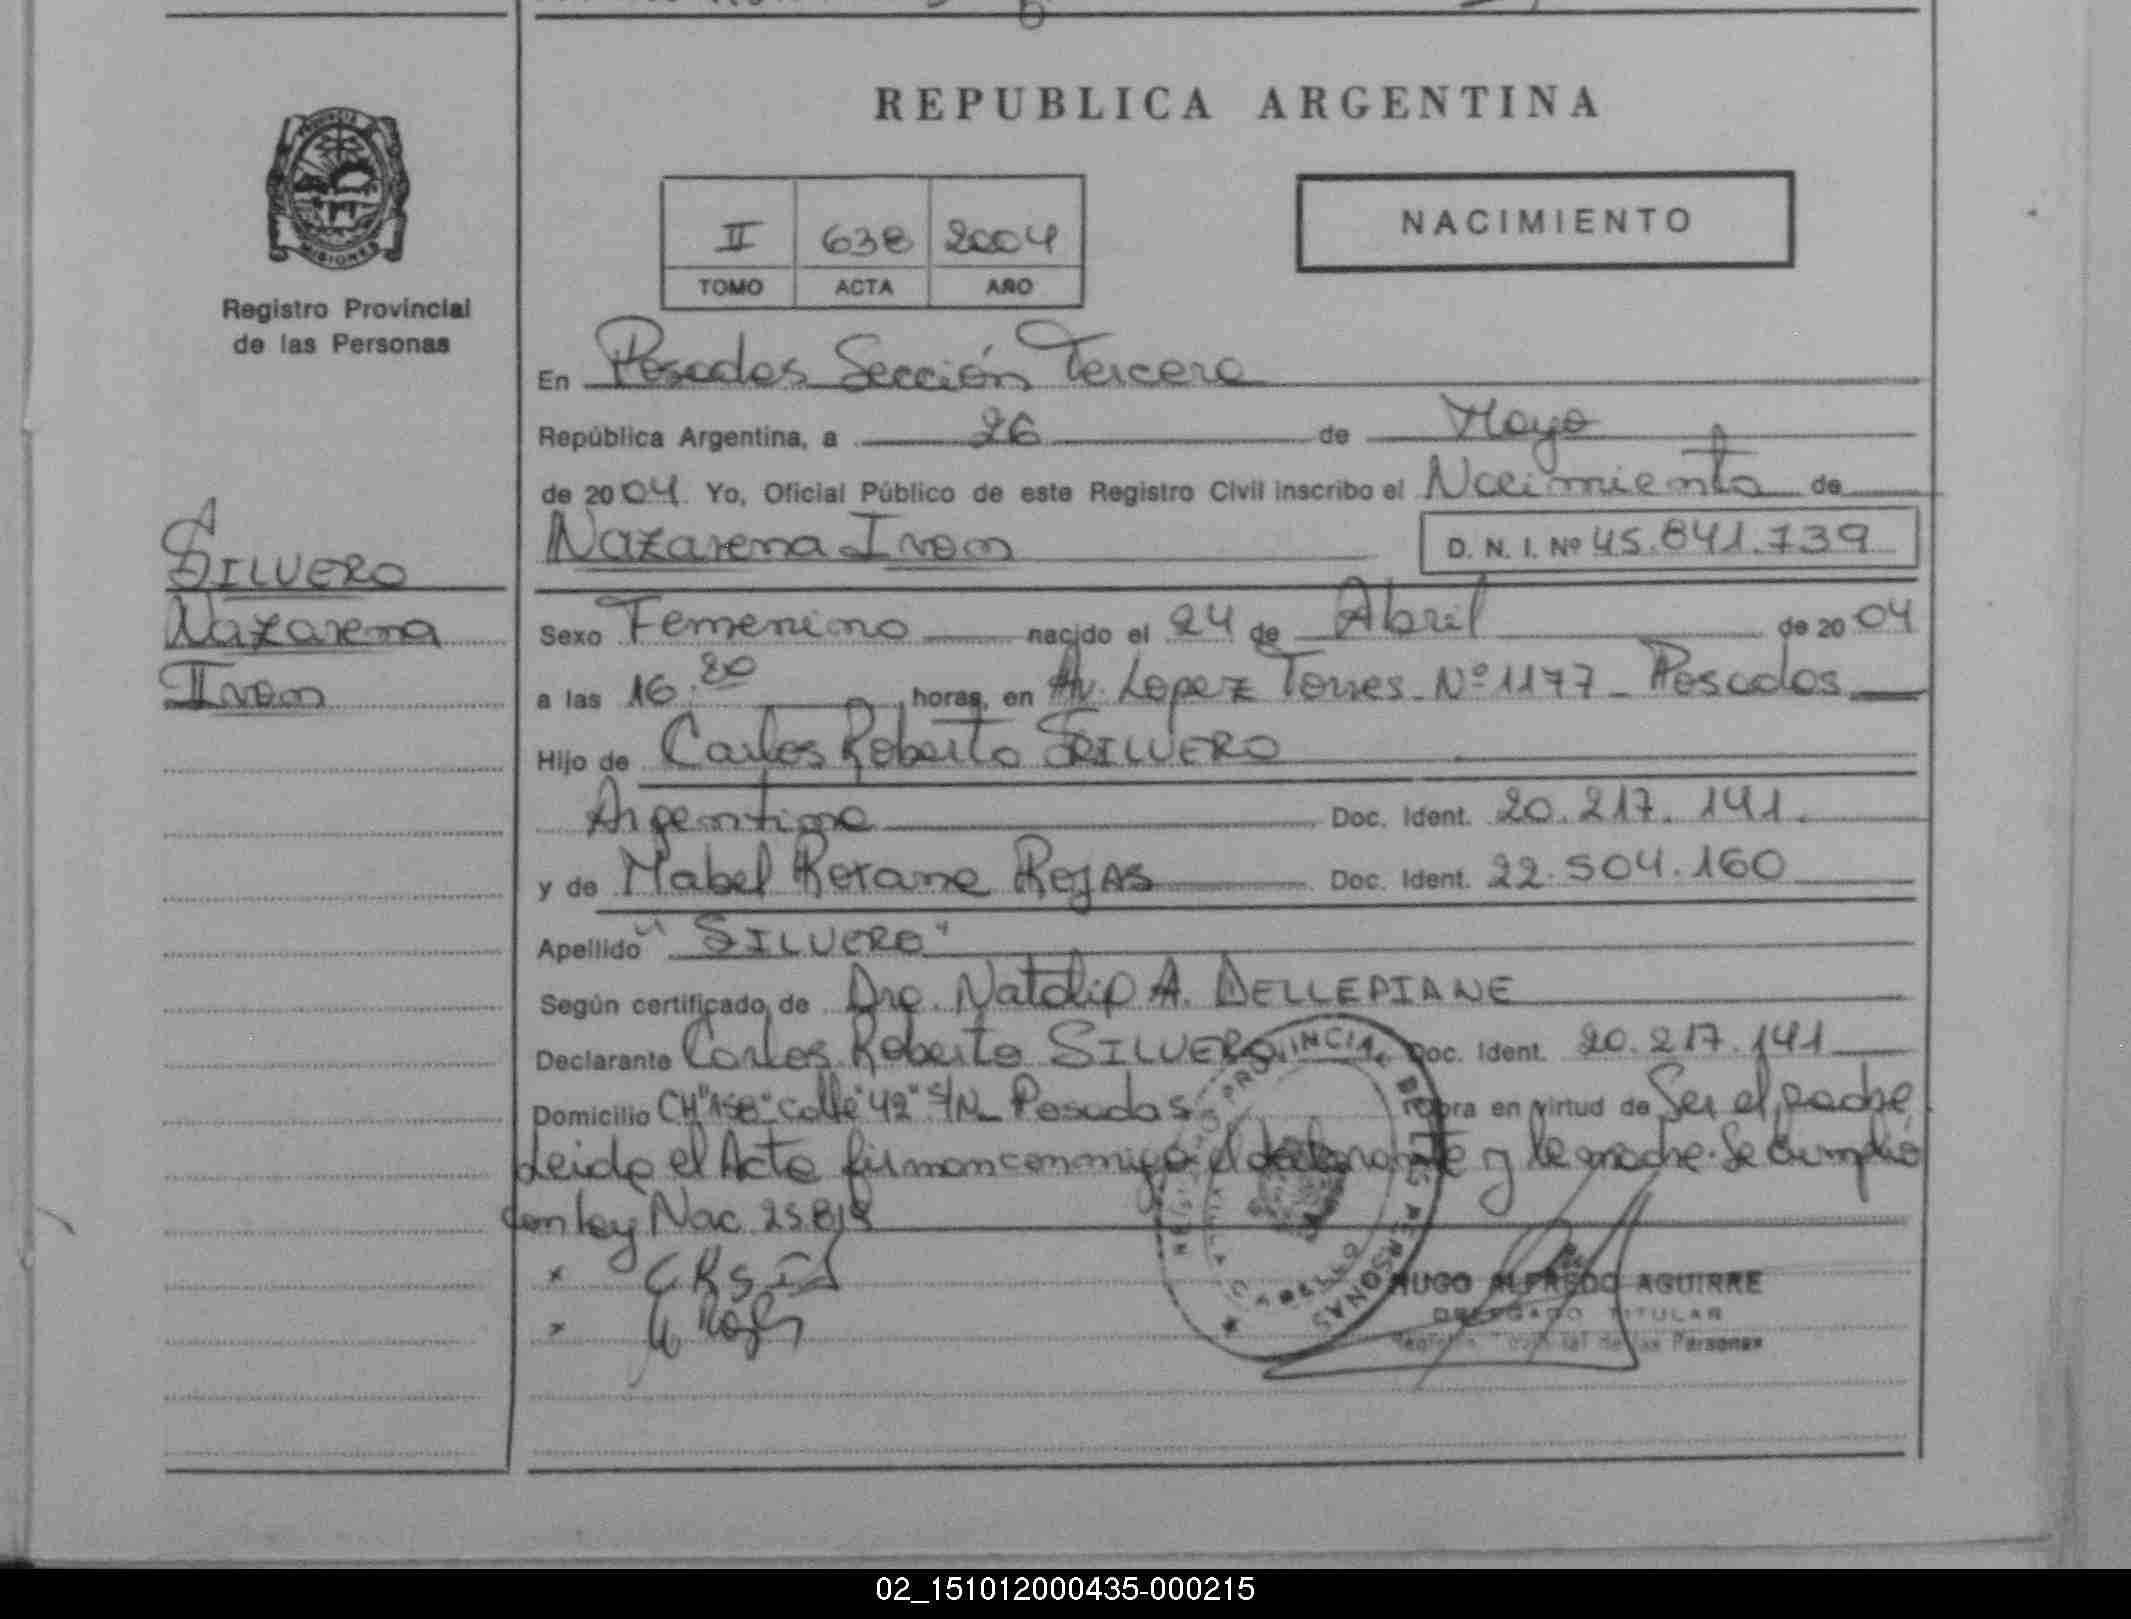 REPUBLICA ARGENTINA
PROVINCIA
MISIONES
Registro Provincial
de las Personas
II 638 2004
TOMO ACTA AÑO
NACIMIENTO
En Posadas Sección Tercera
República Argentina, a 26 de Mayo
de 2004. Yo, Oficial Público de este Registro Civil inscribo el Nacimiento de
Nazarena Ivon D. N. I. Nº 45.841.739
SILVERO
Nazarena
Ivon
Sexo Femenino nacido el 24 de Abril de 2004
a las 16:20 horas, en Av. Lopez Torres Nº 1177 - Posadas
Hijo de Carlos Roberto SILVERO
Argentina Doc. Ident. 20.217.141.
y de Mabel Roxana ROJAS Doc. Ident. 22.504.160
Apellido "SILVERO"
Según certificado de Dra. Natalia A. DELLEPIANE
Declarante Carlos Roberto SILVERO Doc. Ident. 20.217.141
Domicilio CH"158" calle "42" S/N Posadas obra en virtud de Ser el padre
Leida el Acta firman conmigo el declarante y la madre. Se cumplió
con ley Nac. 25.819
HUGO ALFREDO AGUIRRE
DELEGADO TITULAR
Registro Provincial de las Personas
02_151012000435-000215